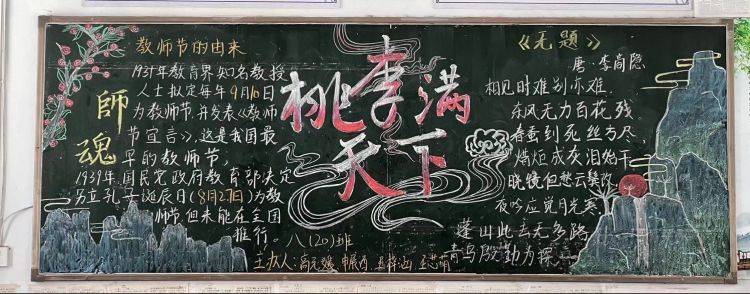 教师节的由来
1931年教育界知名教授
人士拟定每年9月10日
为教师节,并发表《教师
节宣言》,这是我国最
早的教师节,
1939年国民党政府教育部决定
另立孔子诞辰日(8月27日)为教
师节,但未能在全国
推行。
師魂
桃李满
天下
八(20)班
主办人:
《无题》
唐·李商隐
相见时难别亦难
东风无力百花残
春蚕到死丝方尽
蜡炬成灰泪始干
晓镜但愁云鬓改
夜吟应觉月光寒
蓬山此去无多路
青鸟殷勤为探